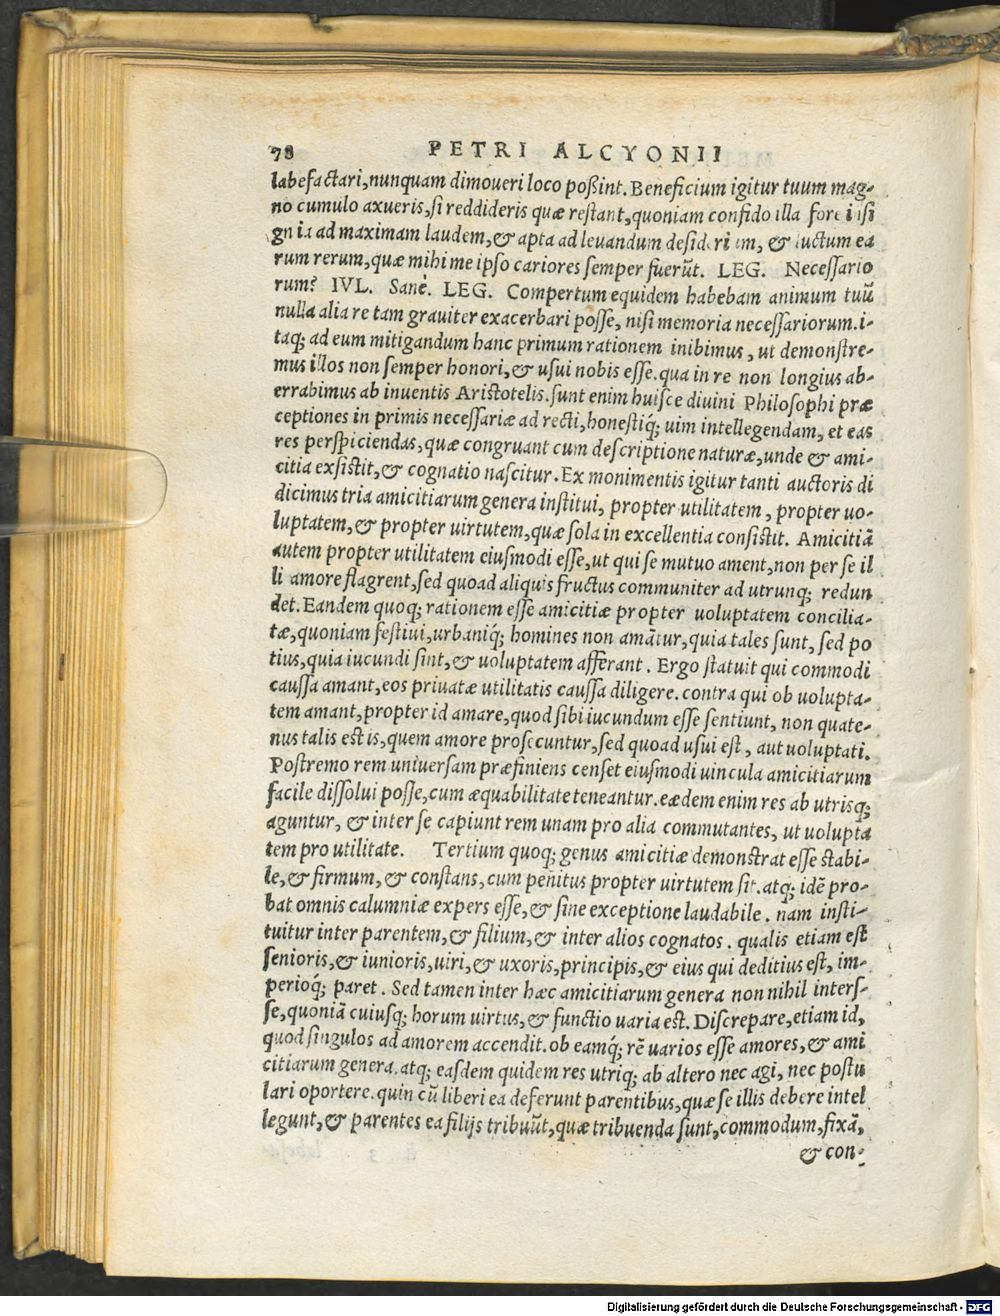 78 PETRI ALCYONII
labefactari,nunquam dimoueri loco poßint. Beneficium igitur tuum mag-
no cumulo axueris,si reddideris quæ restant,quoniam confido illa fore insi
gnia ad maximam laudem,& apta ad leuandum desiderium, & luctum ea
rum rerum,quæ mihi me ipso cariores semper fuerũt. LEG. Necessario
rum? IVL. Sanè. LEG. Compertum equidem habebam animum tuũ
nulla alia re tam grauiter exacerbari posse, nisi memoria necessariorum.i-
taq; ad eum mitigandum hanc primum rationem inibimus, ut demonstre-
mus illos non semper honori,& usui nobis esse.qua in re non longius ab-
errabimus ab inuentis Aristotelis.sunt enim huisce diuini Philosophi præ
ceptiones in primis necessariæ ad recti,honestiq́; uim intellegendam, et eas
res perspiciendas,quæ congruant cum descriptione naturæ,unde & ami-
citia exsistit,& cognatio nascitur. Ex monimentis igitur tanti auctoris di
dicimus tria amicitiarum genera institui, propter utilitatem, propter uo-
luptatem,& propter uirtutem,quæ sola in excellentia consistit. Amicitiã
autem propter utilitatem eiusmodi esse,ut qui se mutuo ament,non per se il
li amore flagrent,sed quoad aliquis fructus communiter ad utrunq; redun
det.Eandem quoq; rationem esse amicitiæ propter uoluptatem concilia-
tæ,quoniam festiui,urbaniq́; homines non amãtur,quia tales sunt, sed po
tius,quia iucundi sint,& uoluptatem afferant. Ergo statuit qui commodi
caussa amant,eos priuatæ utilitatis caussa diligere.contra qui ob uolupta-
tem amant,propter id amare,quod sibi iucundum esse sentiunt, non quate-
nus talis est is,quem amore prosecuntur,sed quoad usui est, aut uoluptati.
Postremo rem uniuersam præfiniens censet eiusmodi uincula amicitiarum
facile dissolui posse,cum æquabilitate teneantur.eædem enim res ab utrisq;
aguntur, & inter se capiunt rem unam pro alia commutantes, ut uolupta
tem pro utilitate. Tertium quoq; genus amicitiæ demonstrat esse stabi-
le,& firmum,& constans,cum penitus propter uirtutem sit.atq; idẽ pro-
bat omnis calumniæ expers esse,& sine exceptione laudabile. nam insti-
tuitur inter parentem,& filium,& inter alios cognatos. qualis etiam est
senioris,& iunioris,uiri,& uxoris,principis,& eius qui deditius est, im-
perioq́; paret. Sed tamen inter hæc amicitiarum genera non nihil inters-
se,quoniã cuiusq; horum uirtus,& functio uaria est. Discrepare,etiam id,
quod singulos ad amorem accendit.ob eamq́; rẽ uarios esse amores,& ami
citiarum genera.atq; easdem quidem res utriq; ab altero nec agi, nec postu
lari oportere.quin cũ liberi ea deferunt parentibus,quæ se illis debere intel
legunt,& parentes ea filijs tribuũt,quæ tribuenda sunt,commodum,fixã,
& con-
Digitalisierung gefördert durch die Deutsche Forschungsgemeinschaft - DFG